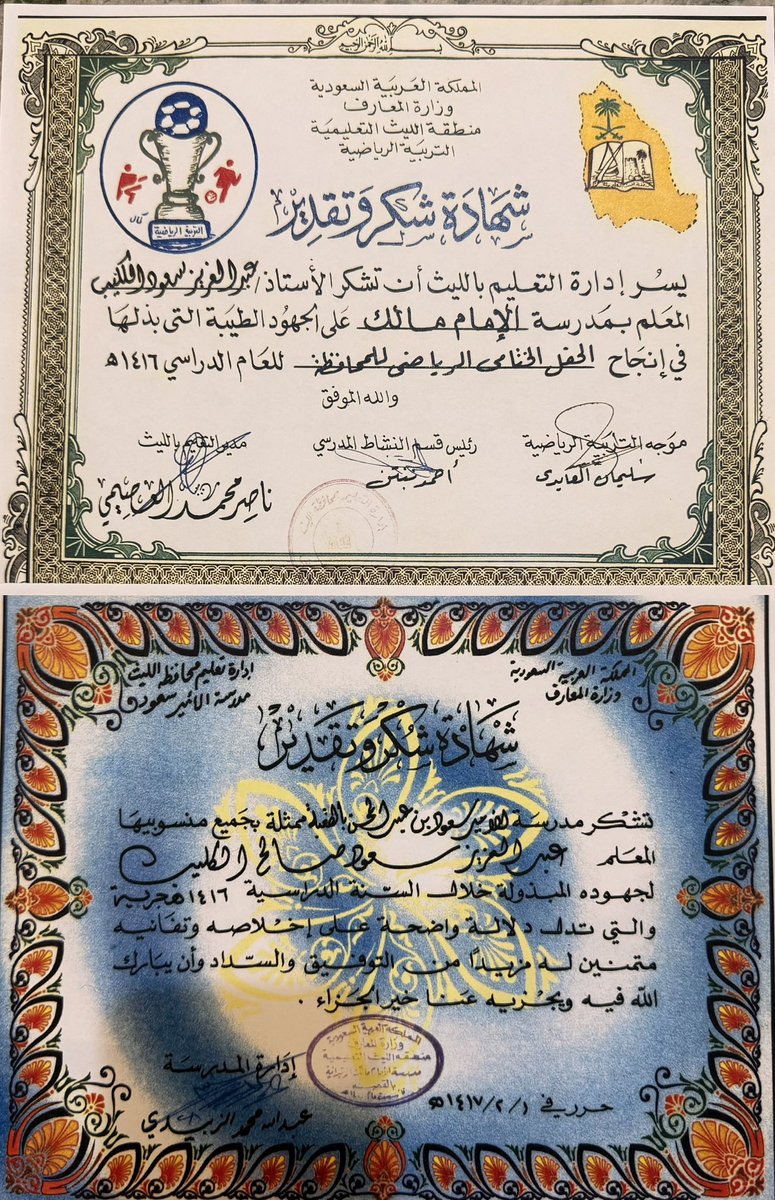 بسم الله الرحمن الرحيم
المملكة العربية السعودية
وزارة المعارف
منطقة الليث التعليمية
التربية الرياضية
كمال
التربية الرياضية
شهادة شكر وتقدير
يسر إدارة التعليم بالليث أن تشكر الأستاذ/ عبد العزيز سعود الكليب
المعلم بمدرسة الإمام مالك على الجهود الطيبة التي بذلها
في إنجاح الحفل الختامي الرياضي للمحافظة للعام الدراسي ١٤١٦ه
والله الموفق
موجه التربية الرياضية
رئيس قسم النشاط المدرسي
مدير التعليم بالليث
سليمان الفايدي
أحمد
ناصر محمد العصيمي
المملكة العربية السعودية
وزارة المعارف
إدارة تعليم محافظة الليث
مدرسة الأمير سعود
شهادة شكر وتقدير
تشكر مدرسة الأمير سعود بن عبد الرحمن ممثلة بجميع منسوبيها
المعلم عبد العزيز سعود صالح الكليب
لجهوده المبذولة خلال السنة الدراسية ١٤١٦ هجرية
والتي تدل دلالة واضحة على إخلاصه وتفانيه
متمنين له مزيدا من التوفيق والسداد وأن يبارك
الله فيه ويجزيه عنا خير الجزاء .
إدارة المدرسة
عبدالله محمد الزبيدي
المملكة العربية السعودية
وزارة المعارف
منطقة الليث التعليمية
حرر في ١٤١٧/٢/١ه